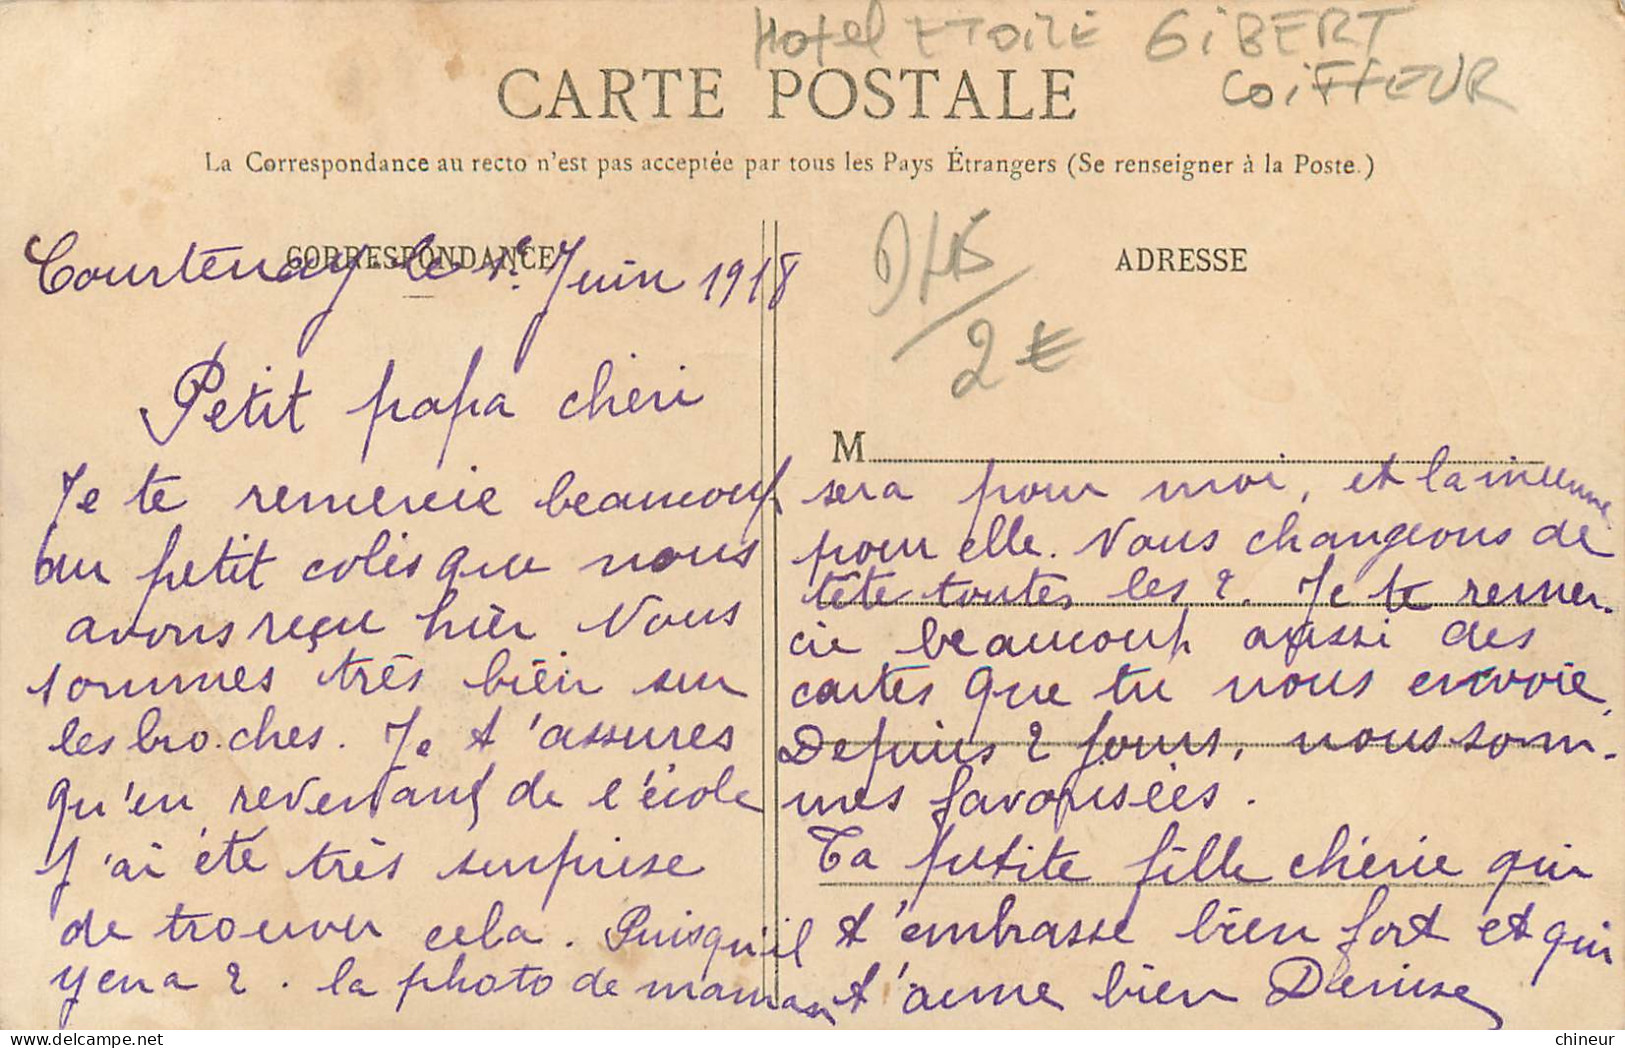 Hotel ETOILE GiBERT
COiFFEUR
CARTE POSTALE
La Correspondance au recto n'est pas acceptée par tous les Pays Étrangers (Se renseigner à la Poste.)
CORRESPONDANCE
ADRESSE
Courtenay le 1e Juin 1918
2 €
Petit papa chéri
M
Je te remercie beaucoup
du petit colis que nous
avons reçu hier Nous
sommes très bien sur
les bro.ches. Je t'assures
qu'en revenant de l'école
j'ai été très surprise
de trouver cela. Puisqu'il
y en a 2. la photo de maman
sera pour moi, et la mienne
pour elle. Nous changeons de
tête toutes les 2. Je te remer-
cie beaucoup aussi des
cartes que tu nous envoie,
Depuis 2 jours, nous som-
mes favorisées.
Ta petite fille chérie qui
t'embrasse bien fort et qui
t'aime bien Denise
chineur